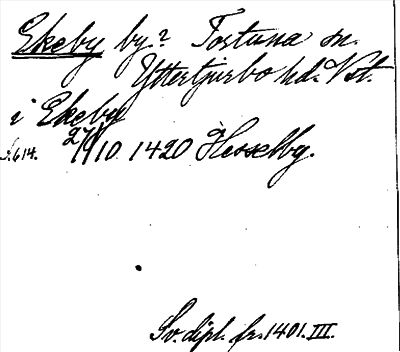 Ekeby by? Tortuna sn.
Yttertjurbo hd. Vstm.
i Ekeby
s. 614. 27/10 1420 Hesselby.
Sv. dipl. fr. 1401. III.